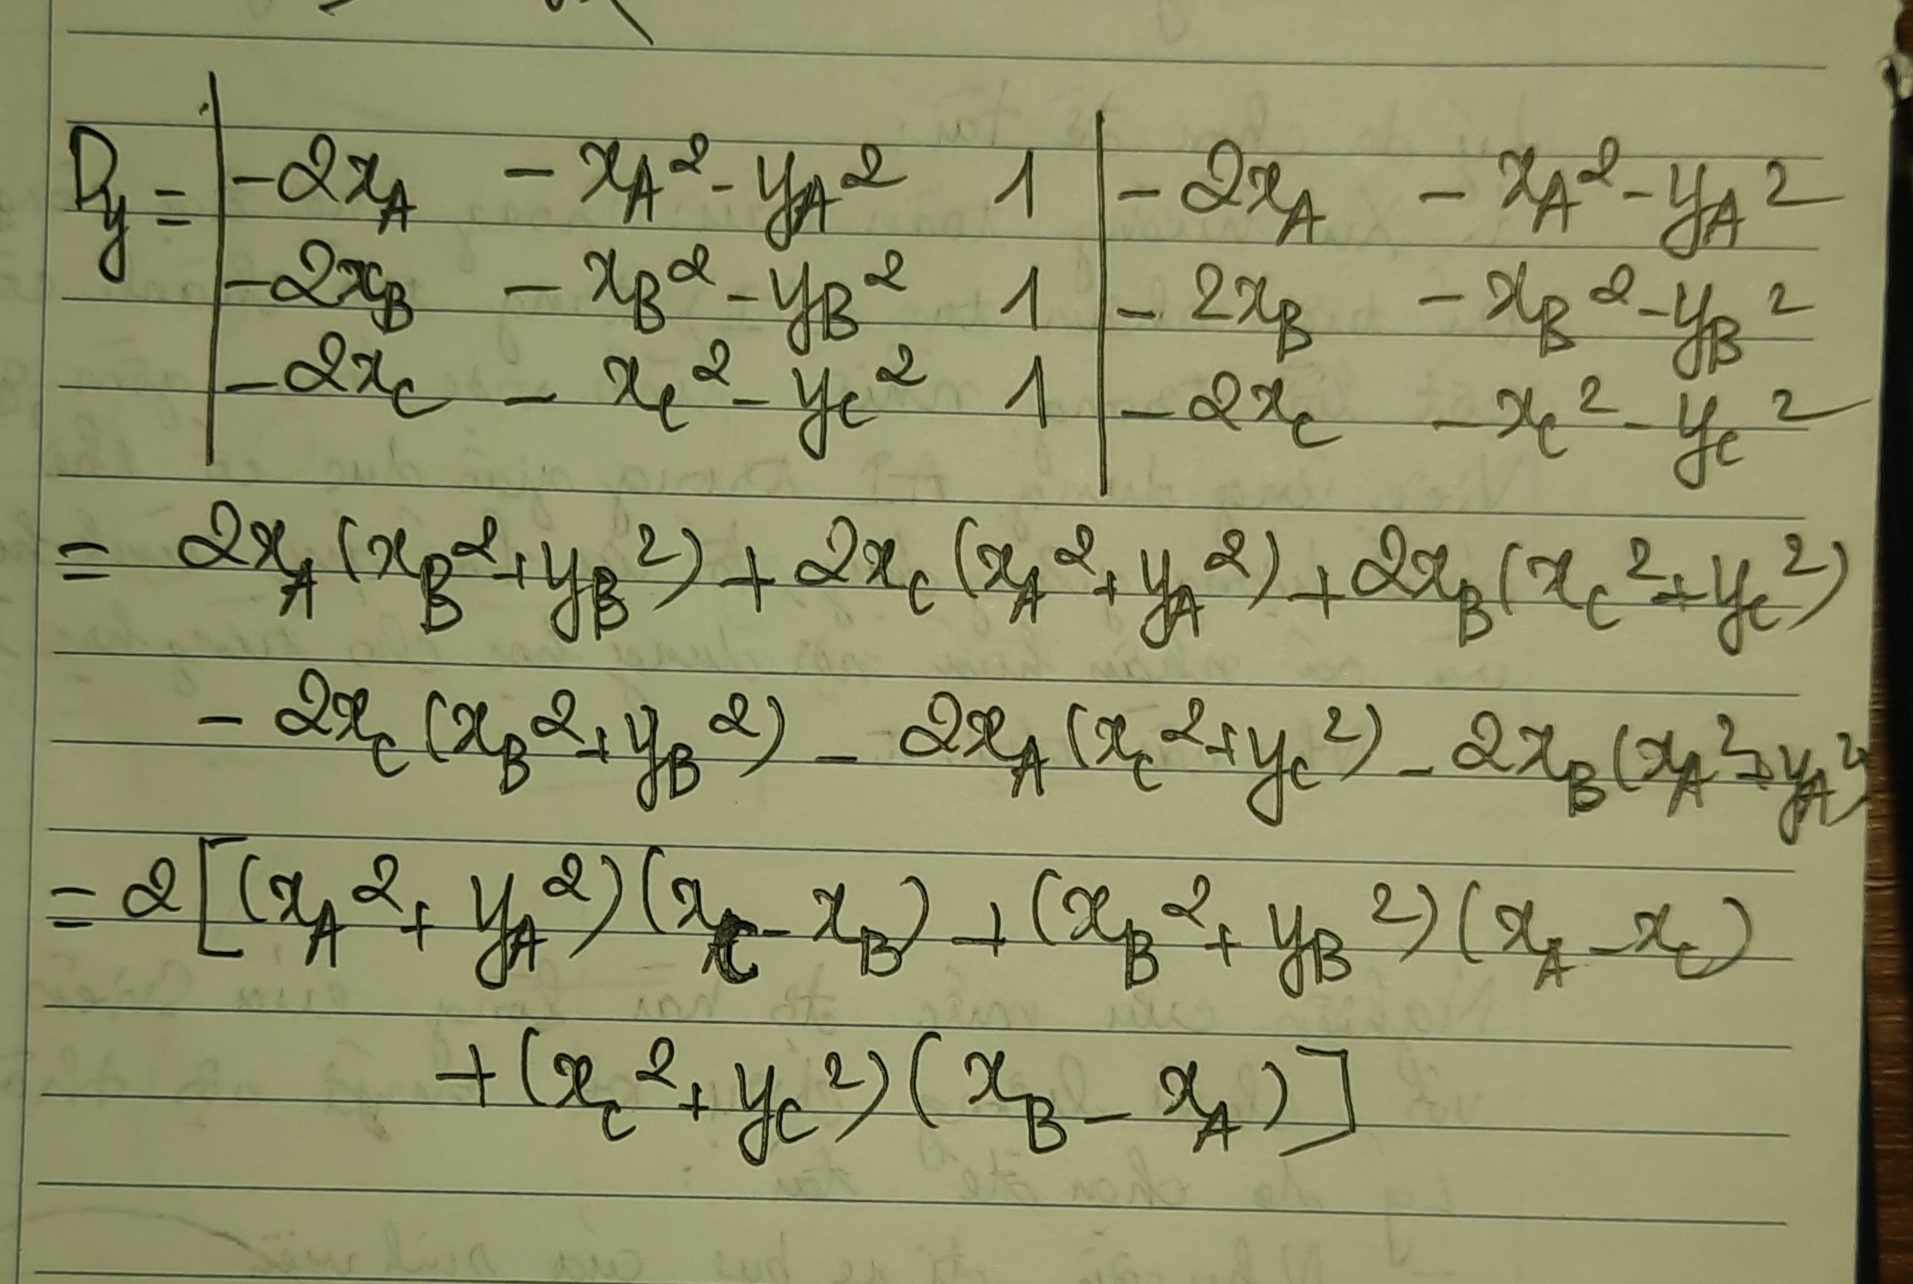 Dy = | -2x_A  -x_A² - y_A²  1 | -2x_A  -x_A² - y_A²
| -2x_B  -x_B² - y_B²  1 | -2x_B  -x_B² - y_B²
| -2x_C  -x_C² - y_C²  1 | -2x_C  -x_C² - y_C²
= 2x_A (x_B² + y_B²) + 2x_C (x_A² + y_A²) + 2x_B (x_C² + y_C²)
- 2x_C (x_B² + y_B²) - 2x_A (x_C² + y_C²) - 2x_B (x_A² + y_A²)
= 2 [(x_A² + y_A²)(x_C - x_B) + (x_B² + y_B²)(x_A - x_C)
+ (x_C² + y_C²)(x_B - x_A)]